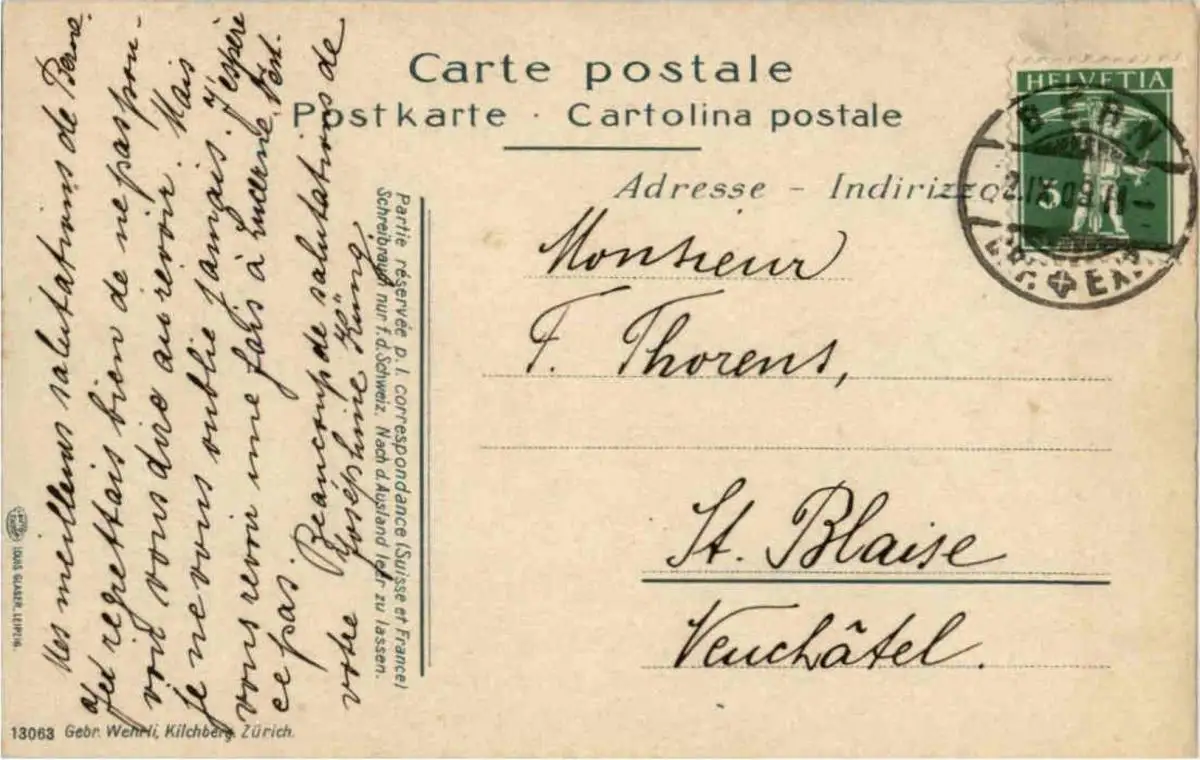 Carte postale
Postkarte · Cartolina postale
Adresse - Indirizzo
HELVETIA
5
BERN
IX. 09.
EXP.
Monsieur
F. Thorens,
St. Blaise
Neuchâtel.
Mes meilleurs salutations de Berne
Jei regrettais bien de ne pas pou-
voir vous dire au revoir. Mais
je ne vous oublie jamais. J'espère
vous revoir une fois à Lucerne. N'est.
ce pas.
Beaucoup de salutations de
votre "Joséphine Küng"
Partie réservée p. l. correspondance (Suisse et France)
Schreibraum nur f. d. Schweiz. Nach d. Ausland leer zu lassen.
LOUIS GLASER, LEIPZIG.
13063 Gebr. Wehrli, Kilchberg, Zürich.